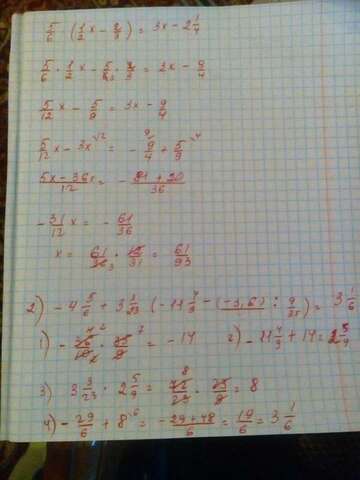 5/6 (1/2 x - 2/3) = 3x - 2 1/4
5/6 · 1/2 x - 5/6 · 2/3 = 3x - 9/4
5/12 x - 5/9 = 3x - 9/4
5/12 x - 3x \12 = - 9/4 \9 + 5/9 \4
5x - 36x / 12 = - 81 + 20 / 36
- 31/12 x = - 61/36
x = 61/36 3 · 12/31 = 61/93
2) - 4 5/6 + 3 3/23 (-11 4/9 - (-5,6) : 9/25) = 3 1/6
1) - · 25/9 = -14 2) -11 4/9 + 14 = 2 5/9
3) 3 3/23 · 2 5/9 = 72/23 · 23/9 = 8
4) - 29/6 + 8 \6 = - 29 + 48 / 6 = 19/6 = 3 1/6